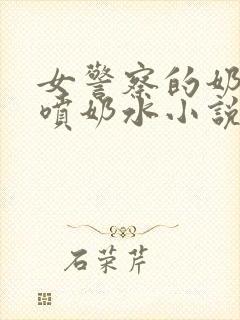 女警察的奶
喷奶水小説
石荣芹